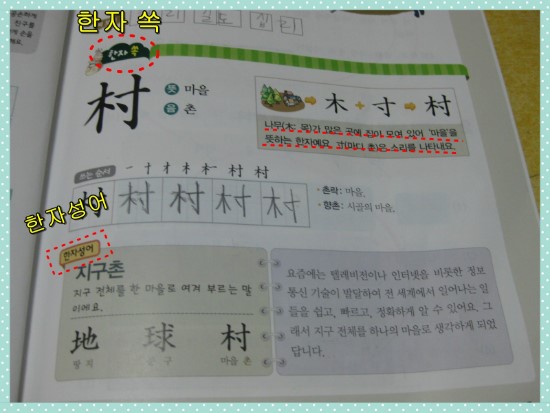 한자 쏙
한자 쏙
村
뜻 마을
음 촌
木 + 寸 村
나무(木: 목)가 많은 곳에 집이 모여 있어 '마을'을
뜻하는 한자예요. 寸(마디 촌)은 소리를 나타내요.
쓰는 순서
一 十 才 木 村 村
村 村 村 村 村
• 촌락: 마을.
• 향촌: 시골의 마을.
한자성어
한자성어
지구촌
지구 전체를 한 마을로 여겨 부르는 말
이에요.
地 球 村
땅 지 공 구 마을 촌
요즘에는 텔레비전이나 인터넷을 비롯한 정보
통신 기술이 발달하여 전 세계에서 일어나는 일
들을 쉽고, 빠르고, 정확하게 알 수 있어요. 그
래서 지구 전체를 하나의 마을로 생각하게 되었
답니다.